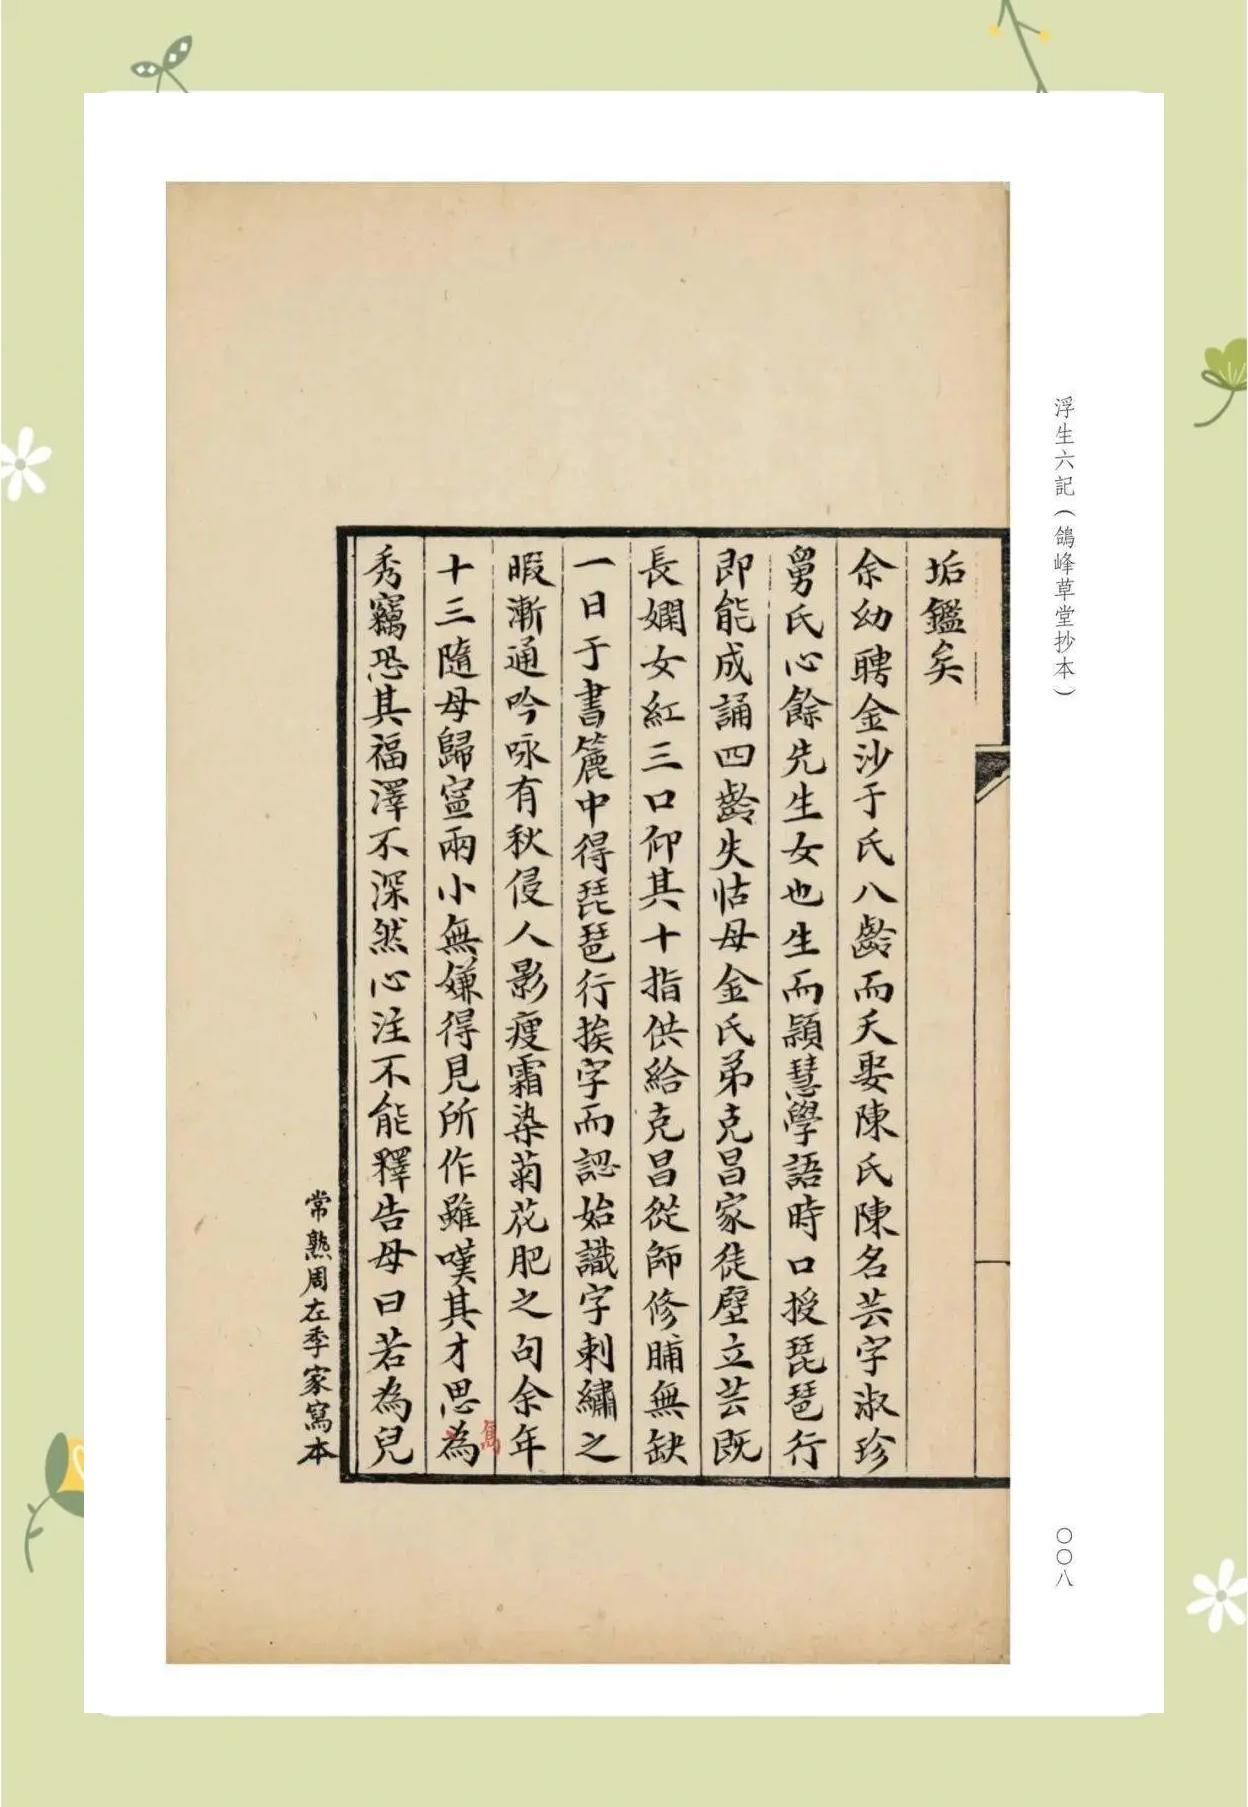 浮生六記(鴿峰草堂抄本)
〇〇八
垢鑑矣
余幼聘金沙于氏八齡而夭娶陳氏陳名芸字淑珍
舅氏心餘先生女也生而穎慧學語時口授琵琶行
即能成誦四齡失怙母金氏弟克昌家徒壁立芸既
長嫻女紅三口仰其十指供給克昌從師修脯無缺
一日于書簏中得琵琶行挨字而認始識字刺繡之
暇漸通吟咏有秋侵人影瘦霜染菊花肥之句余年
十三隨母歸寍兩小無嫌得見所作雖嘆其才思為
雋
秀竊恐其福澤不深然心注不能釋告母曰若為兒
常熟周左季家寫本